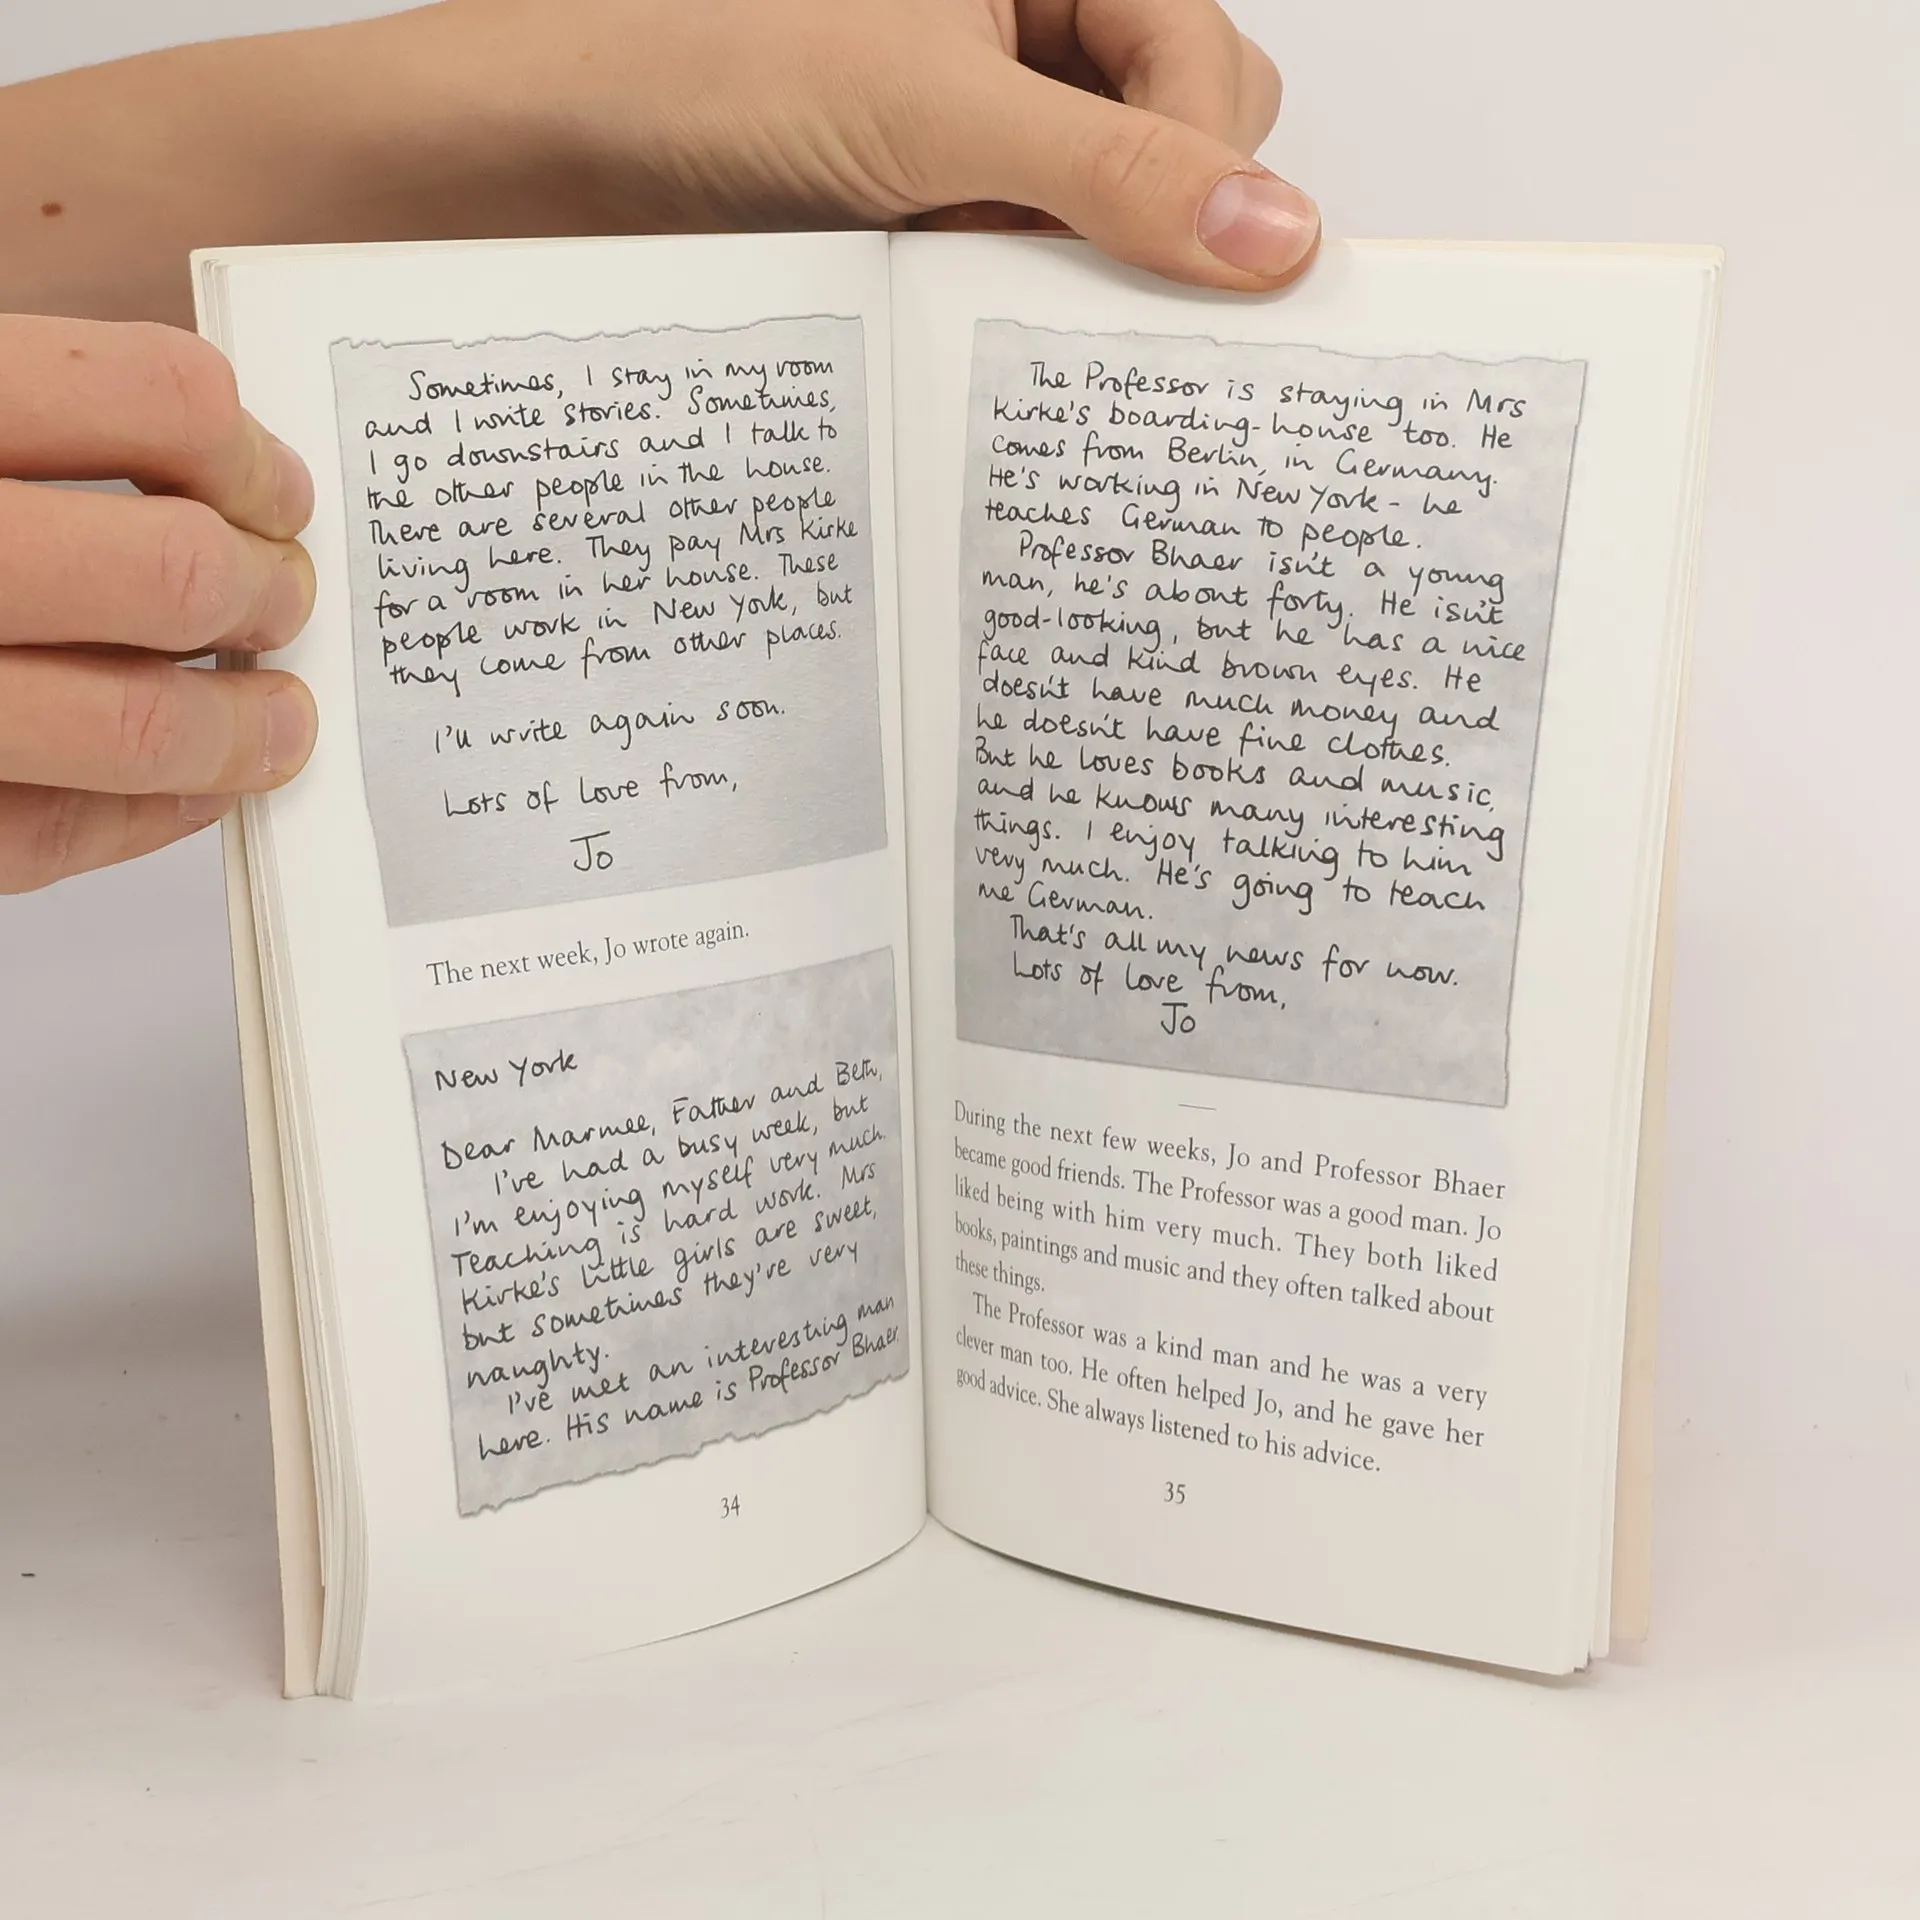 Sometimes, I stay in my room
and I write stories. Sometimes,
I go downstairs and I talk to
the other people in the house.
There are several other people
living here. They pay Mrs Kirke
for a room in her house. These
people work in New York, but
they come from other places.
I'll write again soon.
Lots of love from,
Jo
The next week, Jo wrote again.
New York
Dear Marmee, Father and Beth,
I've had a busy week, but
I'm enjoying myself very much.
Teaching is hard work. Mrs
Kirke's little girls are sweet,
but sometimes they're very
naughty.
I've met an interesting man
here. His name is Professor Bhaer.
34
The Professor is staying in Mrs
Kirke's boarding-house too. He
comes from Berlin, in Germany.
He's working in New York - he
teaches German to people.
Professor Bhaer isn't a young
man, he's about forty. He isn't
good-looking, but he has a nice
face and kind brown eyes. He
doesn't have much money and
he doesn't have fine clothes.
But he loves books and music,
and he knows many interesting
things. I enjoy talking to him
very much. He's going to teach
me German.
That's all my news for now.
Lots of love from,
Jo
During the next few weeks, Jo and Professor Bhaer
became good friends. The Professor was a good man. Jo
liked being with him very much. They both liked
books, paintings and music and they often talked about
these things.
The Professor was a kind man and he was a very
clever man too. He often helped Jo, and he gave her
good advice. She always listened to his advice.
35